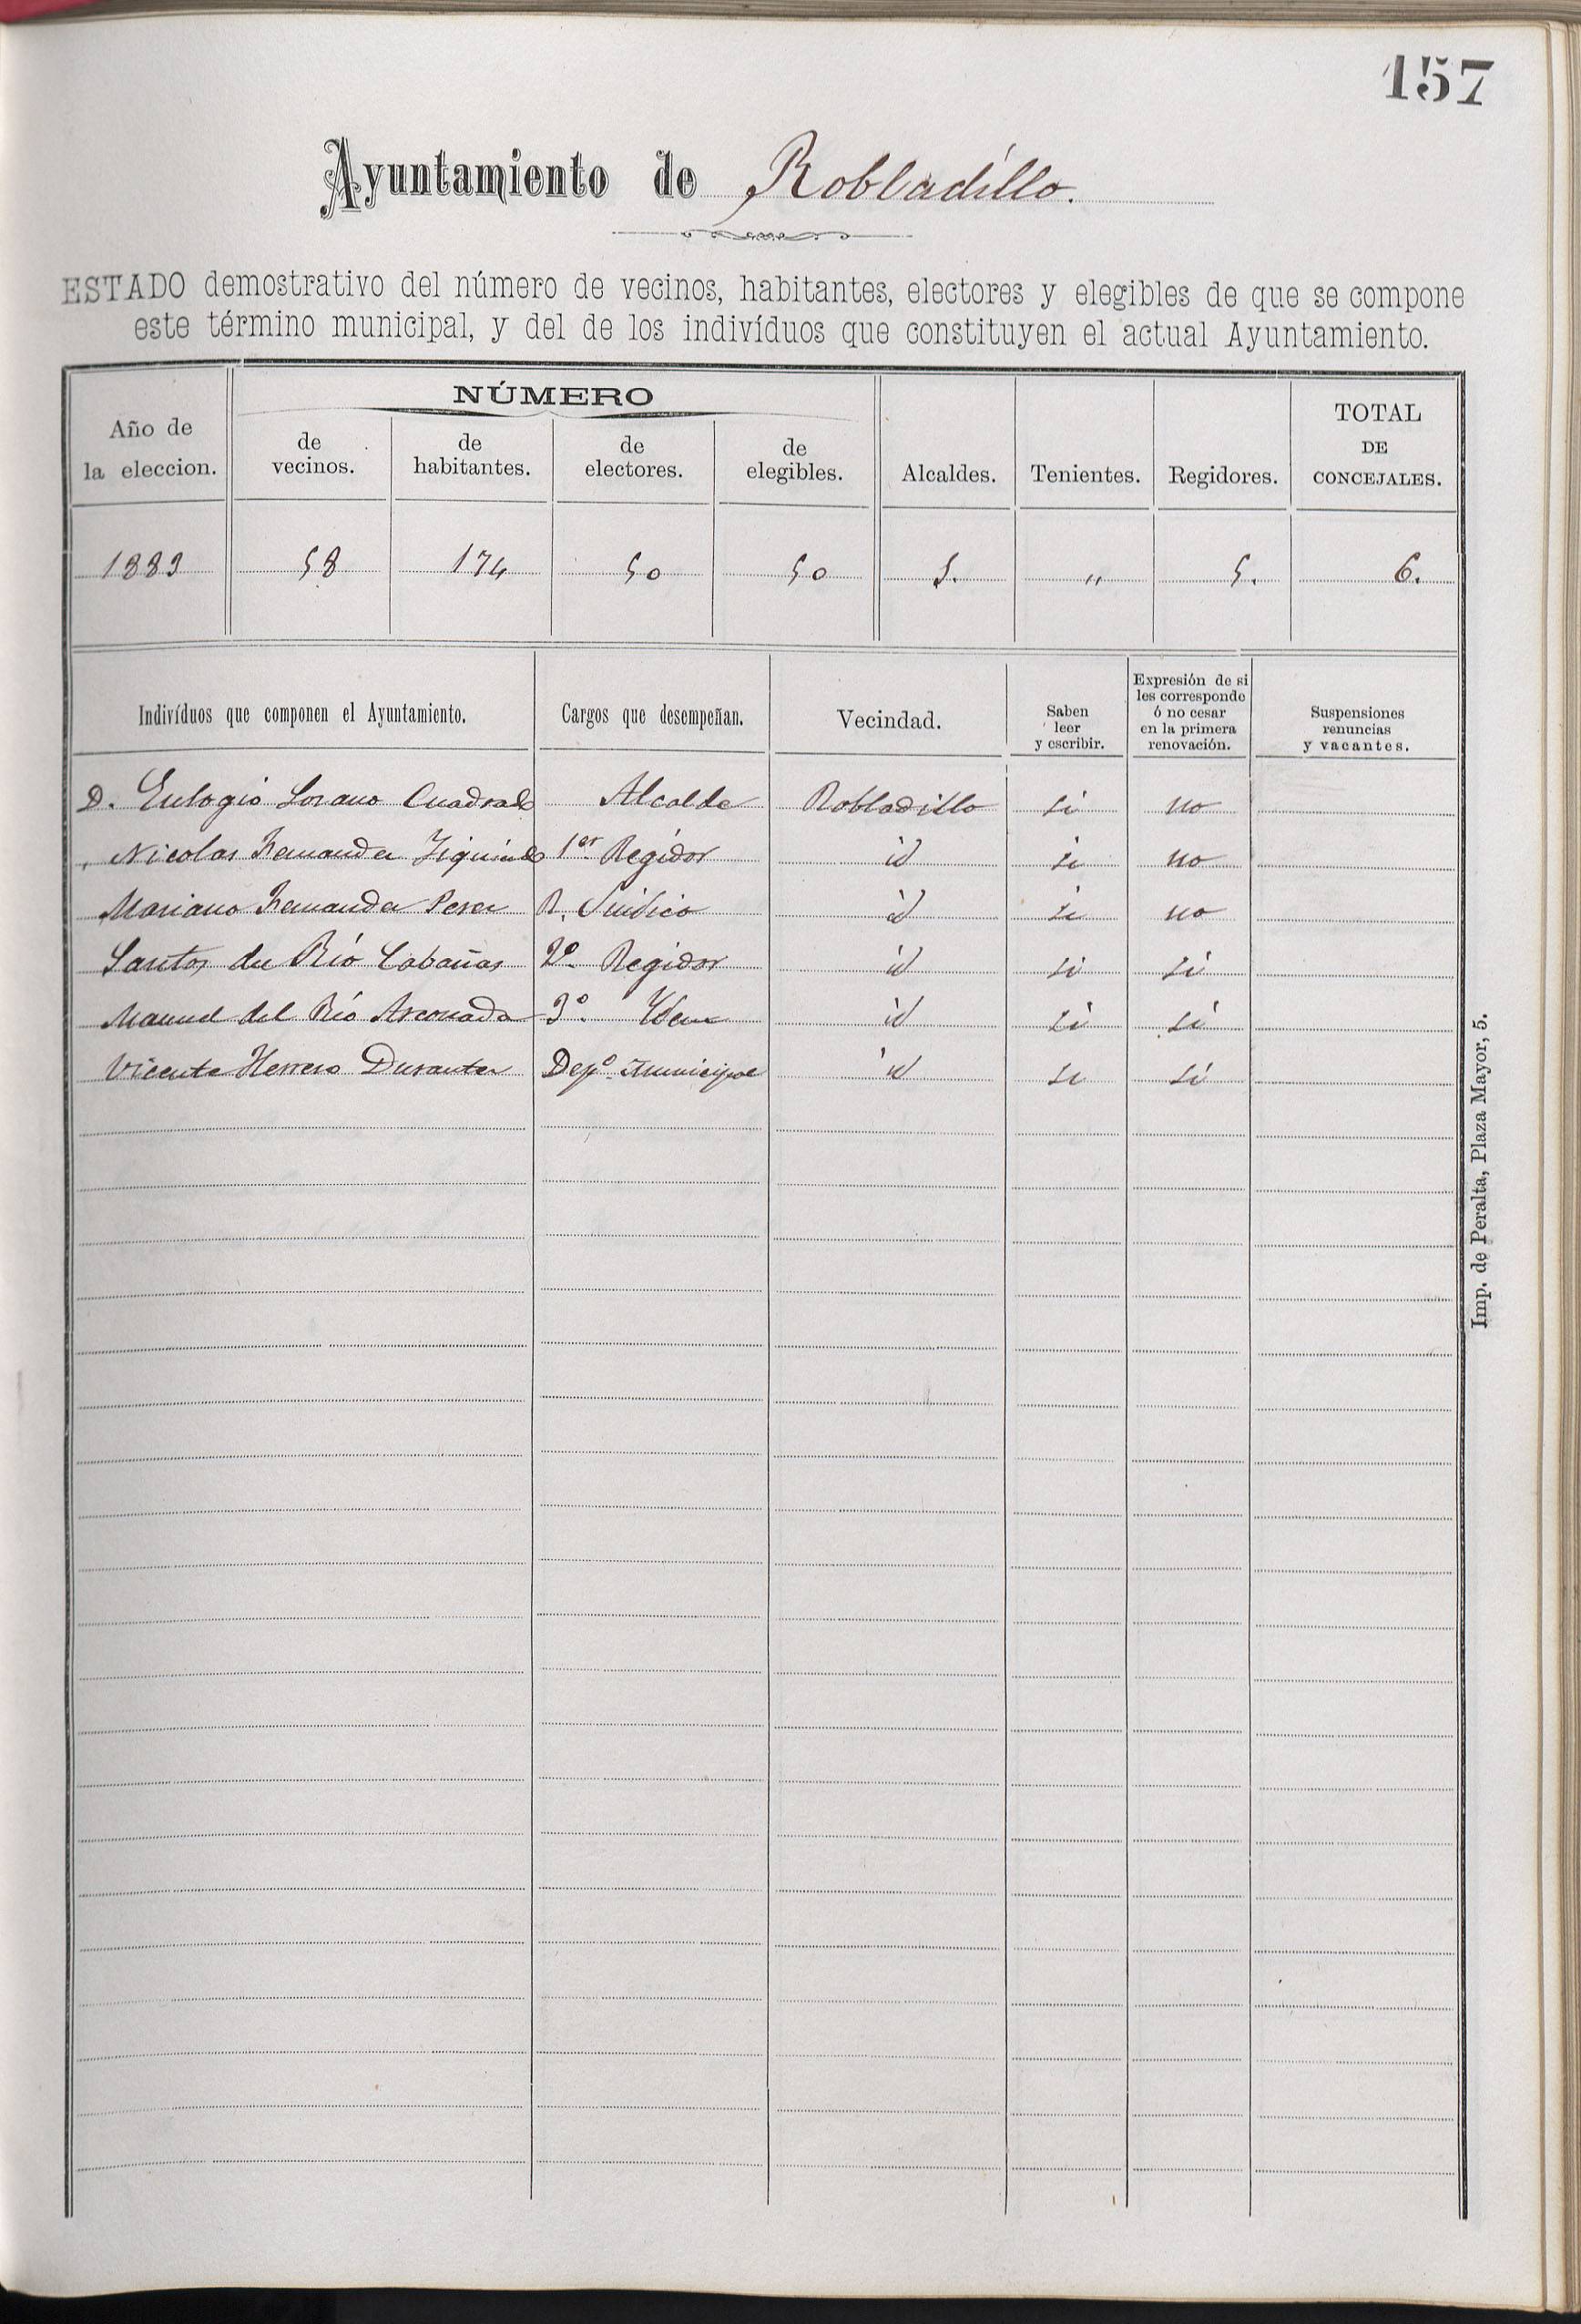 157
Ayuntamiento de Robladillo.
ESTADO demostrativo del número de vecinos, habitantes, electores y elegibles de que se compone
este término municipal, y del de los indivíduos que constituyen el actual Ayuntamiento.
Año de la eleccion. NÚMERO de vecinos. de habitantes. de electores. de elegibles. Alcaldes. Tenientes. Regidores. TOTAL DE CONCEJALES.
1889 58 174 50 50 1. " 5. 6.
Indivíduos que componen el Ayuntamiento. Cargos que desempeñan. Vecindad. Saben leer y escribir. Expresión de si les corresponde ó no cesar en la primera renovación. Suspensiones renuncias y vacantes.
D. Eulogio Lozano Cuadrado Alcalde Robladillo si no
Nicolas Fernandez 1er Regidor id si no
Mariano Fernandez Perez R. Sindico id si no
Santos del Río Cabañas 2º Regidor id si si
Manuel del Río Arconada 3º Idem id si si
Vicente Herrero Durantez Depº municipal id si si
Imp. de Peralta, Plaza Mayor, 5.